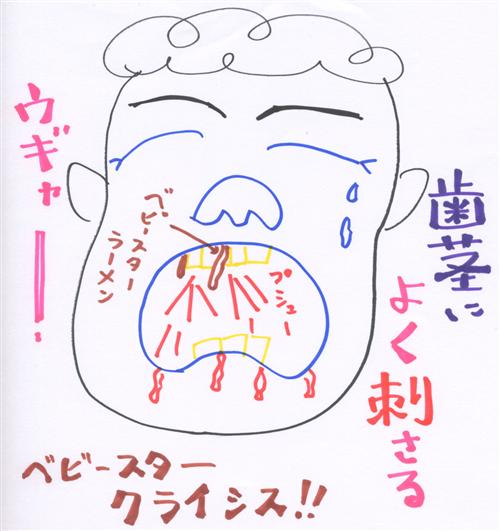 歯茎に
よく刺さる
ウギャー!
ベビースター
ラーメン
プシュー
ベビースター
クライシス!!